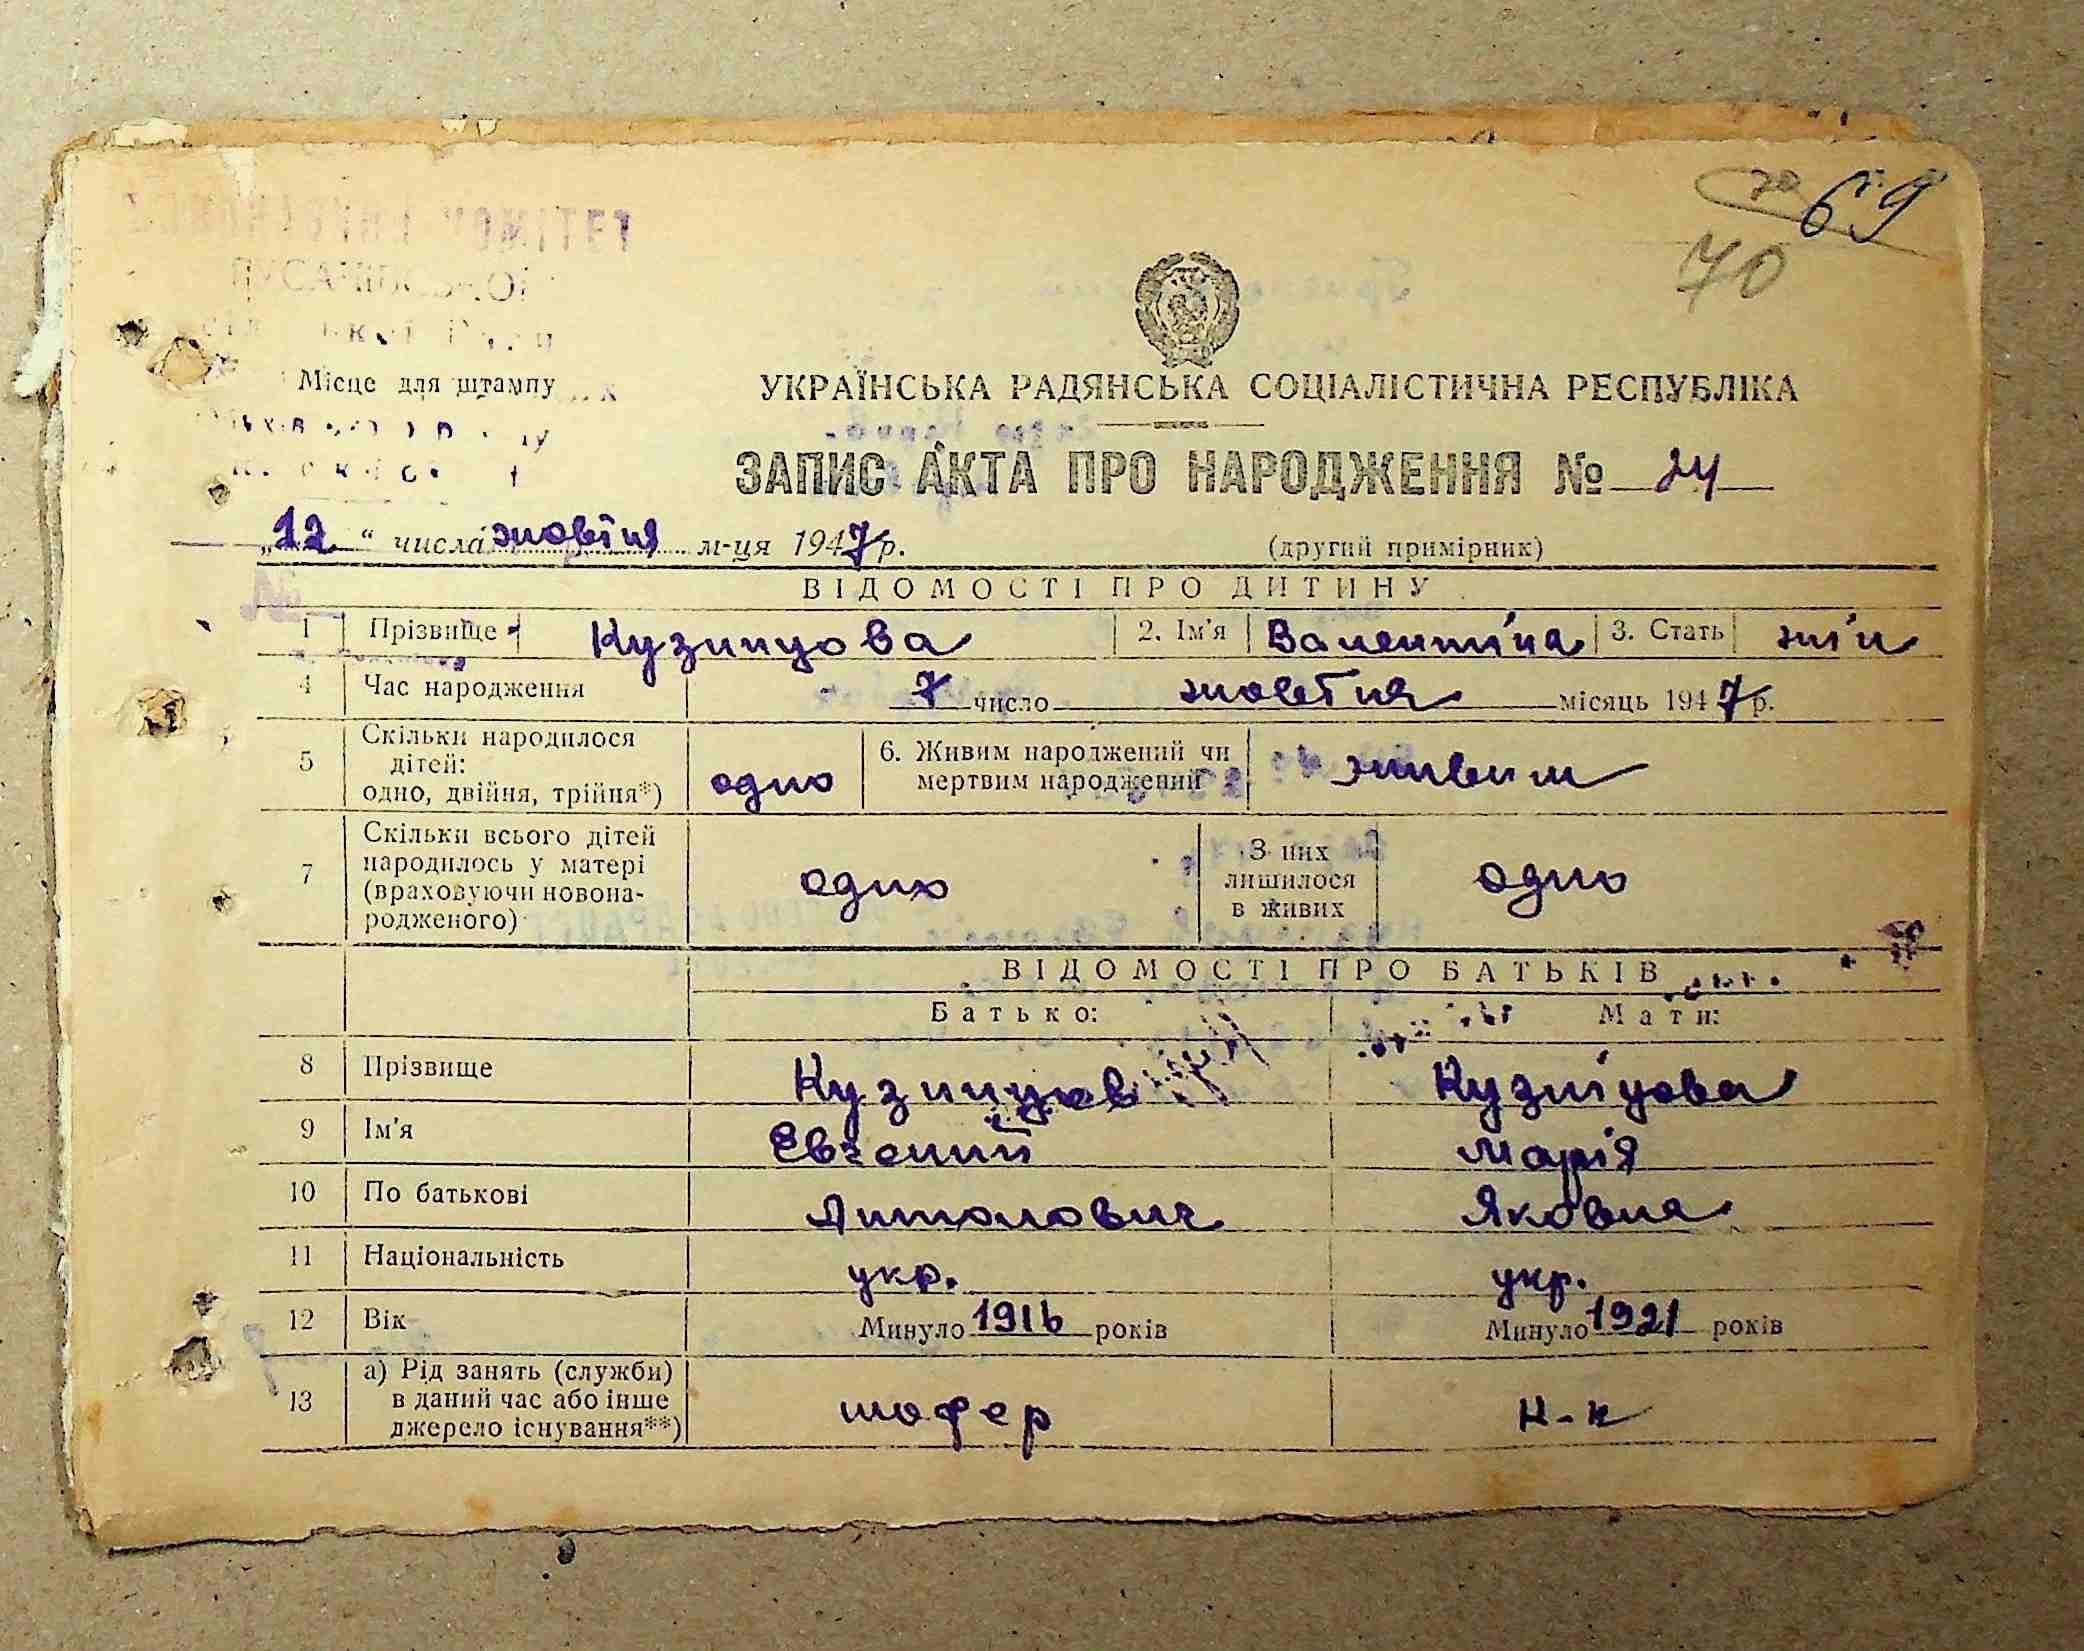 69
70
КОМІТЕТ
Місце для штампу
УКРАЇНСЬКА РАДЯНСЬКА СОЦІАЛІСТИЧНА РЕСПУБЛІКА
ЗАПИС АКТА ПРО НАРОДЖЕННЯ № 24
„12" числа жовтня м-ця 1947 р. (другий примірник)
ВІДОМОСТІ ПРО ДИТИНУ
1 Прізвище Кузницова 2. Ім'я Валентіна 3. Стать жін
4 Час народження 7 число жовтня місяць 1947 р.
5 Скільки народилося дітей: одно, двійня, трійня*) одно 6. Живим народжений чи мертвим народжений живим
7 Скільки всього дітей народилось у матері (враховуючи новонародженого) одно З них лишилося в живих одно
ВІДОМОСТІ ПРО БАТЬКІВ
Батько: Мати:
8 Прізвище Кузницов Кузніцова
9 Ім'я Евгений Марія
10 По батькові Антонович Яковна
11 Національність укр. укр.
12 Вік Минуло 1916 років Минуло 1921 років
13 а) Рід занять (служби) в даний час або інше джерело існування**) шофер к-к